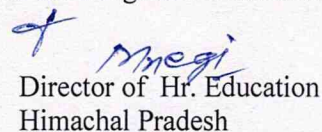 Director of Hr. Education
Himachal Pradesh